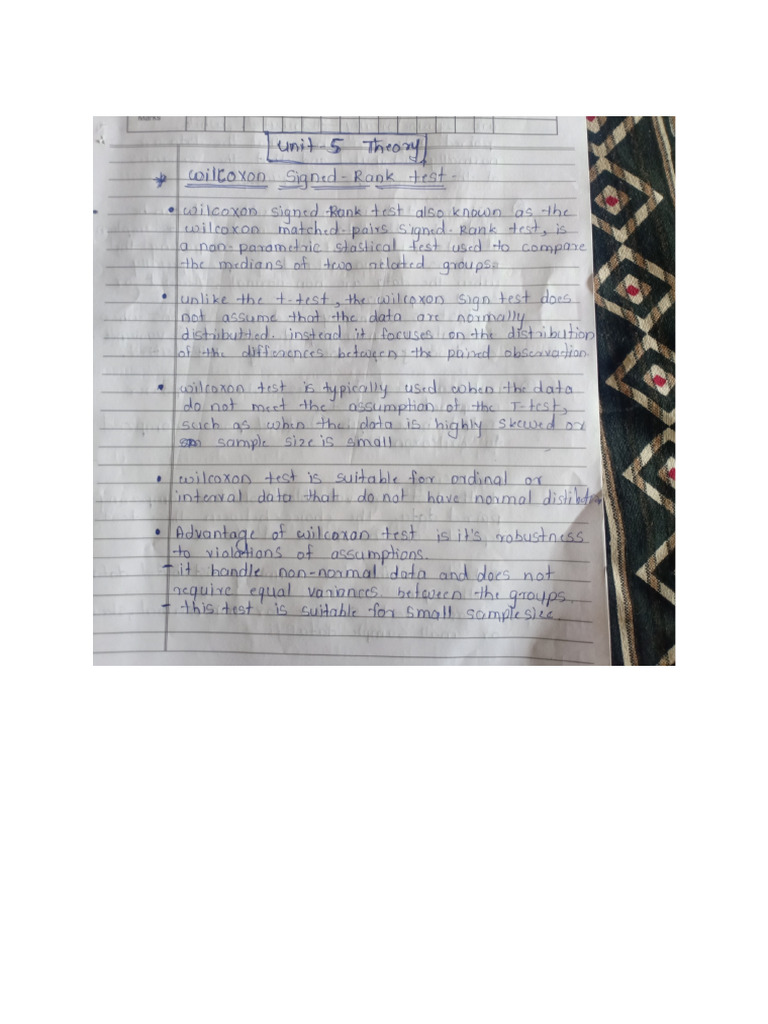 Marks
Unit-5 Theory
* Wilcoxon Signed-Rank test-
• wilcoxon signed-Rank test also known as the
wilcoxon matched-pairs signed-Rank test, is
a non-parametric stastical test used to compare
the medians of two related groups.
• unlike the t-test, the wilcoxon sign test does
not assume that the data are normally
distributted. instead it focuses on the distribution
of the differences between the paired observation.
• wilcoxon test is typically used when the data
do not meet the assumption of the T-test,
such as when the data is highly skewed or
sample size is small
• wilcoxon test is suitable for ordinal or
interval data that do not have normal
• Advantage of wilcoxan test is it's robustness
to violations of assumptions.
- it handle non-normal data and does not
require equal variances between the groups.
- this test is suitable for small sample size.